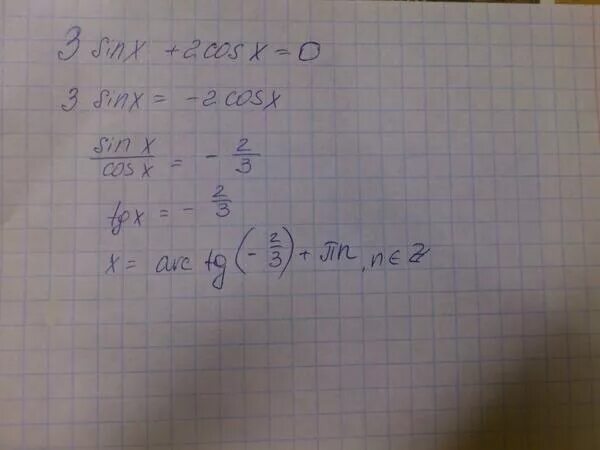 3 sinx + 2cosx = 0
3 sinx = -2cosx
sin x / cos x = - 2/3
tgx = - 2/3
x = arctg(-2/3) + πn, n∈Z